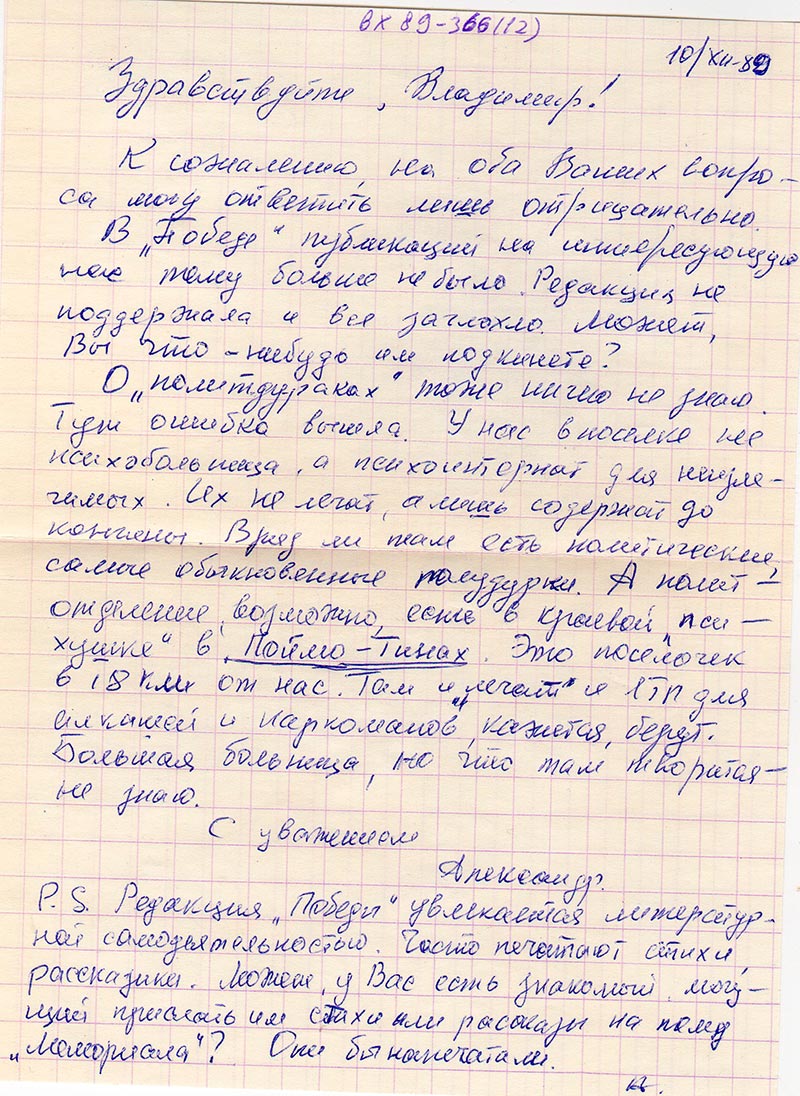 вх 89-366(12)
10/XII-89
Здравствуйте, Владимир!
К сожалению, на оба Ваших вопро-
са могу ответить лишь отрицательно.
В „Победе" публикаций на интересующую
нас тему больше не было. Редакция не
поддержала и все заглохло. Может,
Вы что-нибудь им подкинете?
О „политдураках" тоже ничего не знаю.
Тут ошибка вышла. У нас в поселке не
психобольница, а психоинтернат для неизле-
чимых. Их не лечат, а лишь содержат до
кончины. Вряд ли там есть политические,
самые обыкновенные придурки. А полит-
отделение, возможно, есть в краевой „пси-
хушке" в Поймо-Тинах. Это посёлочек
в 18 км от нас. Там и „лечат" и ЛТП для
алкашей и наркоманов, кажется, берут.
Большая больница, но что там творится-
не знаю.
С уважением
Александр.
P.S. Редакция „Победы" увлекается литератур-
ной самодеятельностью. Часто печатают стихи,
рассказики. Может, у Вас есть знакомый, могу-
щий прислать им стихи или рассказы на тему
„Мемориала"? Они бы напечатали.